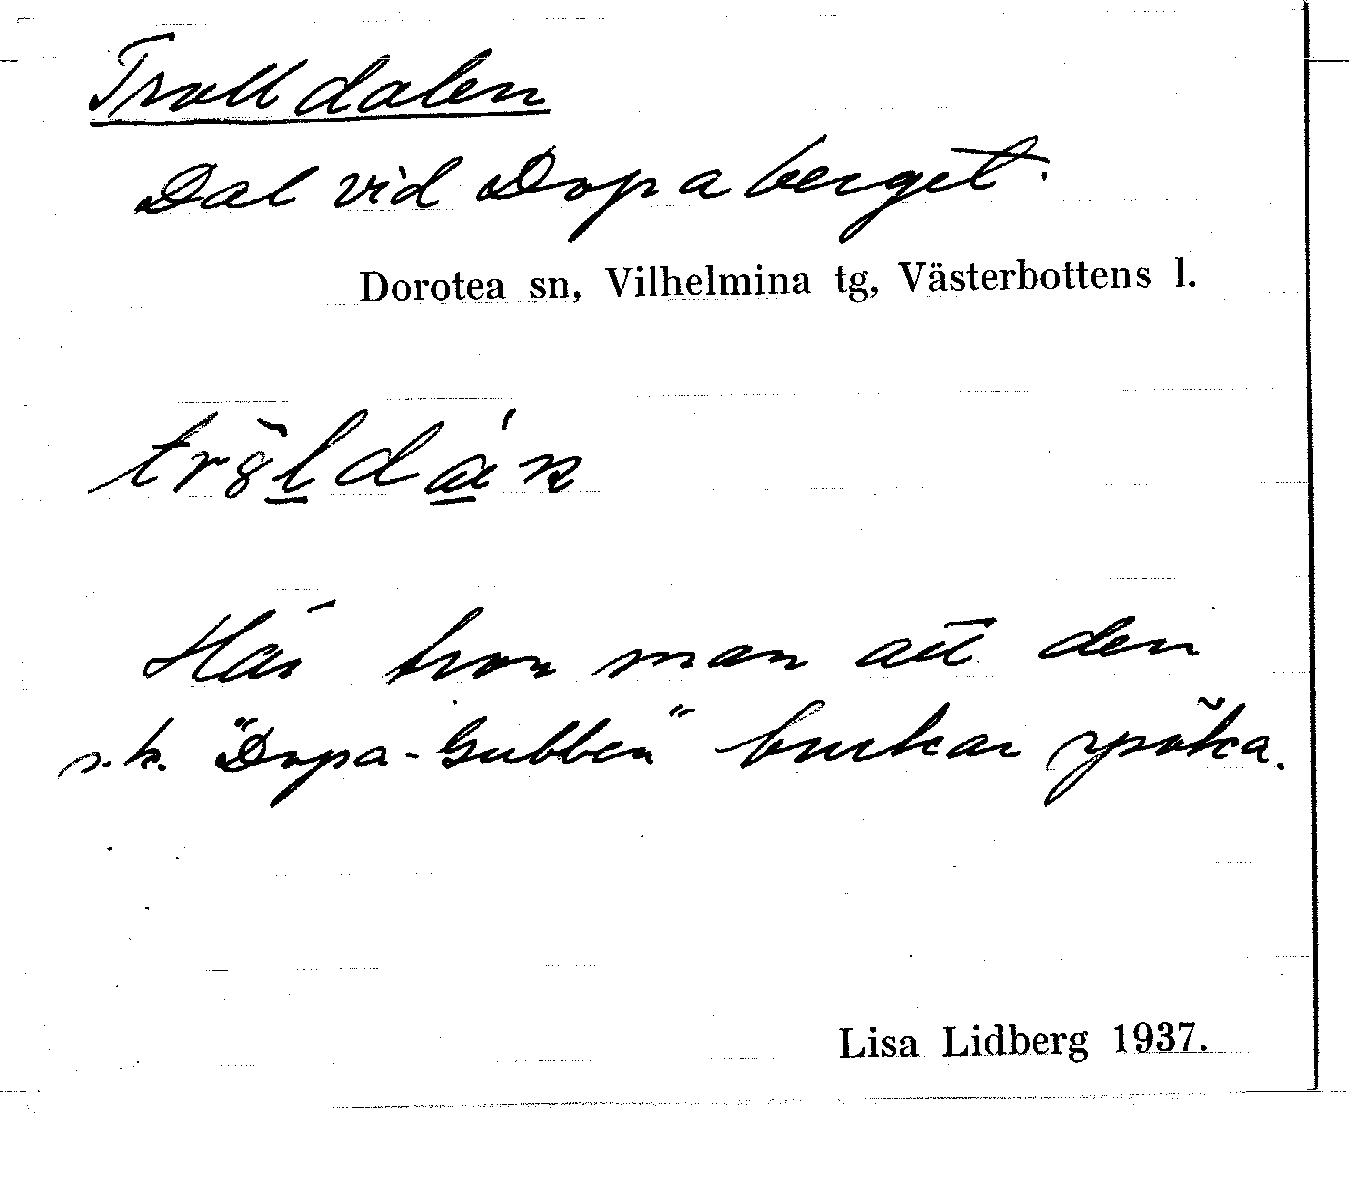 Trolldalen
Dal vid Dopaberget.
Dorotea sn, Vilhelmina tg, Västerbottens l.
Här tror man att den
s.k. "Dopa-Gubben" brukar spöka.
Lisa Lidberg 1937.